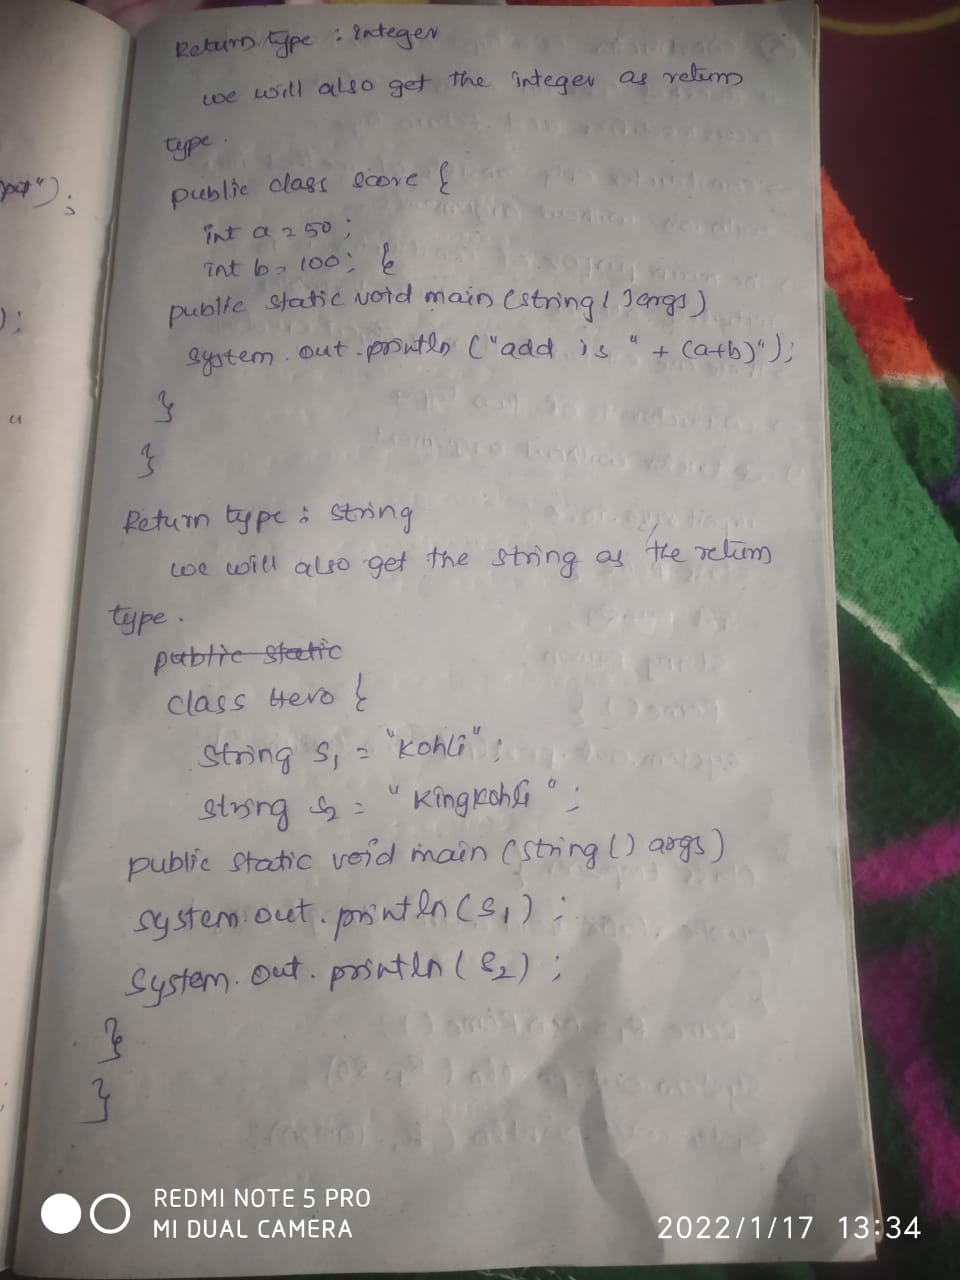 pat");
);
"
Return type : Integer
we will also get the integer as return
type.
public class score {
int a = 50 ;
int b = 100; {
public static void main (string [ ] args )
system . out . println ("add is " + (a+b)");
}
}
Return type : string
we will also get the string as the return
type .
public static
class Hero {
string s1 = "kohli" ;
string s2 = "kingkohli" ;
public static void main (string () args )
system.out.println(s1) ;
system.out.println(s2) ;
}
}
REDMI NOTE 5 PRO
MI DUAL CAMERA
2022/1/17 13:34